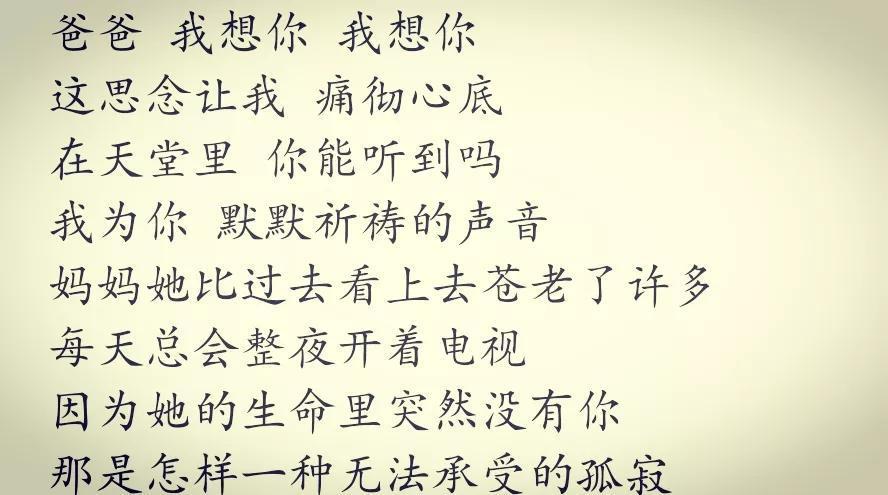 爸爸 我想你 我想你
这思念让我 痛彻心底
在天堂里 你能听到吗
我为你 默默祈祷的声音
妈妈她比过去看上去苍老了许多
每天总会整夜开着电视
因为她的生命里突然没有你
那是怎样一种无法承受的孤寂